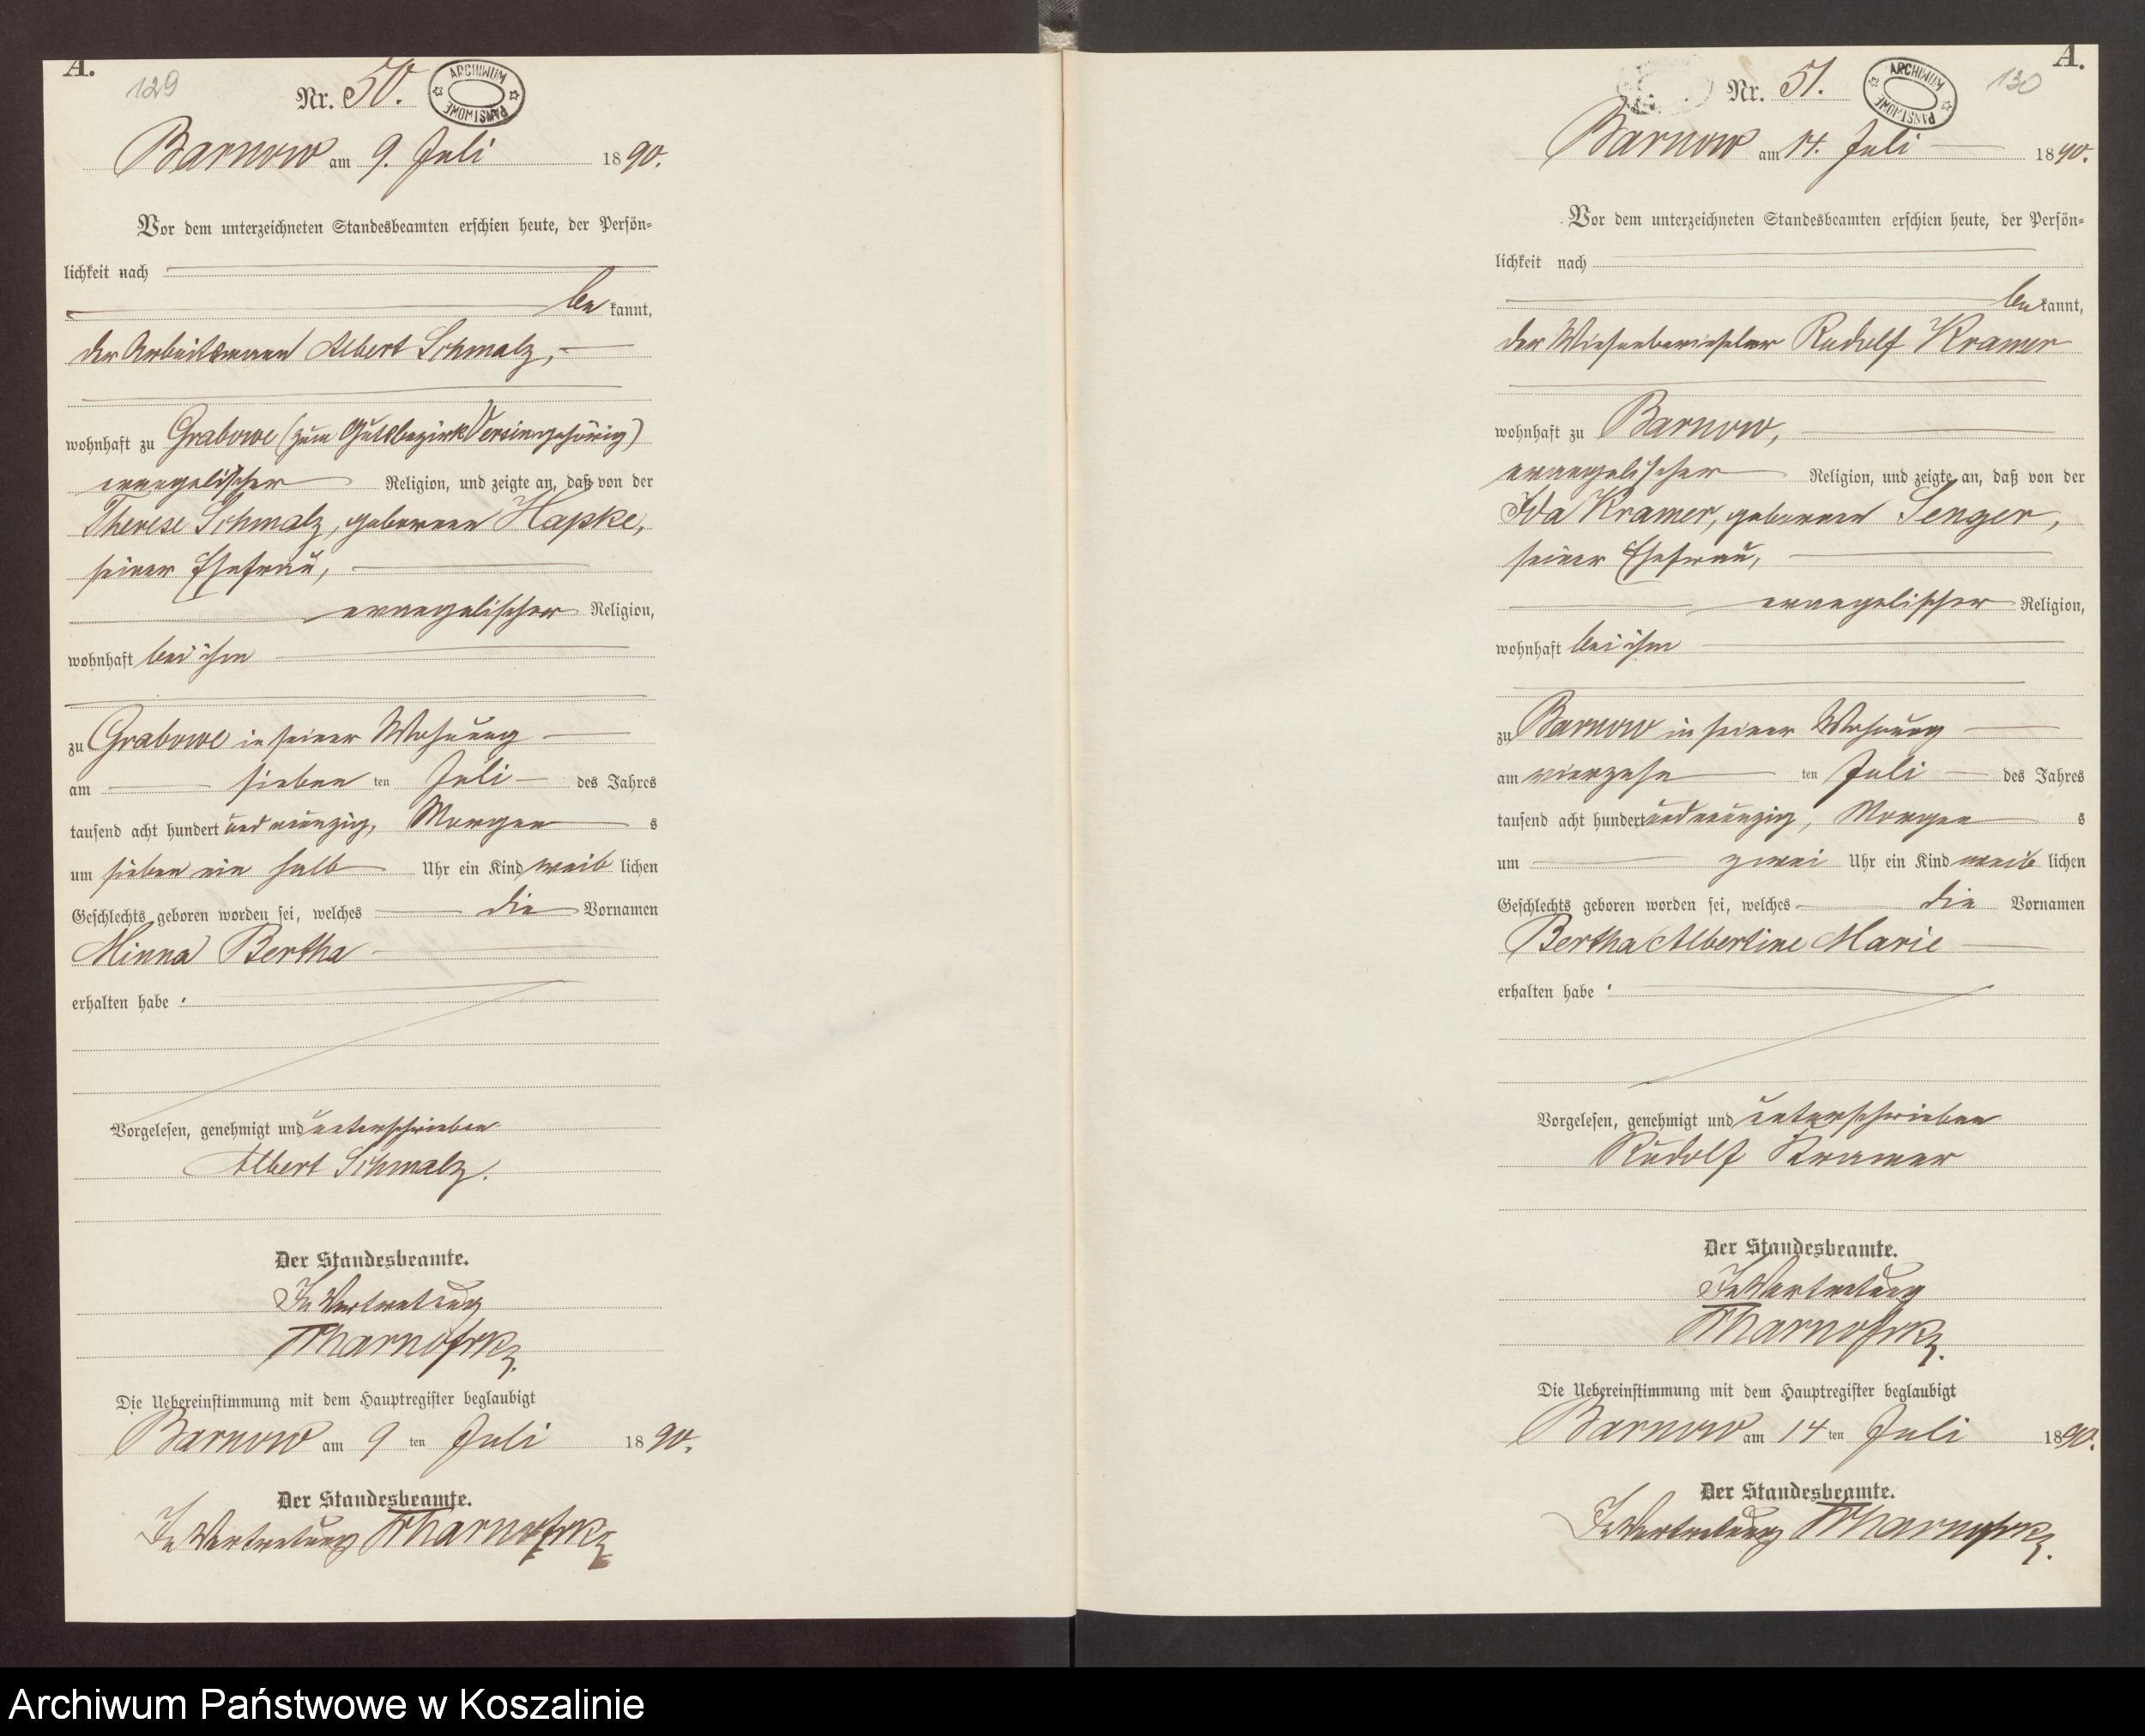 A.
129
Nr. 50.
ARCHIWUM PAŃSTWOWE
Barnow am 9. Juli 1890.
Vor dem unterzeichneten Standesbeamten erschien heute, der Persön-
lichkeit nach
be kannt,
der Arbeitsmann Albert Schmalz,
wohnhaft zu Grabowe (zum Gutsbezirk Versin gehörig)
evangelischer Religion, und zeigte an, daß von der
Therese Schmalz, geborenen Hapke,
seiner Ehefrau,
evangelischer Religion,
wohnhaft bei ihm
zu Grabowe in seiner Wohnung
am sieben ten Juli des Jahres
tausend acht hundert und neunzig, Morgen s
um sieben ein halb Uhr ein Kind weib lichen
Geschlechts geboren worden sei, welches die Vornamen
Minna Bertha
erhalten habe.
Vorgelesen, genehmigt und unterschrieben
Albert Schmalz.
Der Standesbeamte.
In Vertretung
Die Uebereinstimmung mit dem Hauptregister beglaubigt
Barnow am 9 ten Juli 1890.
Der Standesbeamte.
In Vertretung
A.
130
Nr. 51.
ARCHIWUM PAŃSTWOWE
Barnow am 14. Juli 1890.
Vor dem unterzeichneten Standesbeamten erschien heute, der Persön-
lichkeit nach
be kannt,
der Wiesenberieseler Rudolf Kramer
wohnhaft zu Barnow,
evangelischer Religion, und zeigte an, daß von der
Ida Kramer, geborenen Senger,
seiner Ehefrau,
evangelischer Religion,
wohnhaft bei ihm
zu Barnow in seiner Wohnung
am vierzehn ten Juli des Jahres
tausend acht hundert und neunzig, Morgen s
um zwei Uhr ein Kind weib lichen
Geschlechts geboren worden sei, welches die Vornamen
Bertha Albertine Marie
erhalten habe.
Vorgelesen, genehmigt und unterschrieben
Rudolf Kramer
Der Standesbeamte.
In Vertretung
Die Uebereinstimmung mit dem Hauptregister beglaubigt
Barnow am 14 ten Juli 1890.
Der Standesbeamte.
In Vertretung
Archiwum Państwowe w Koszalinie